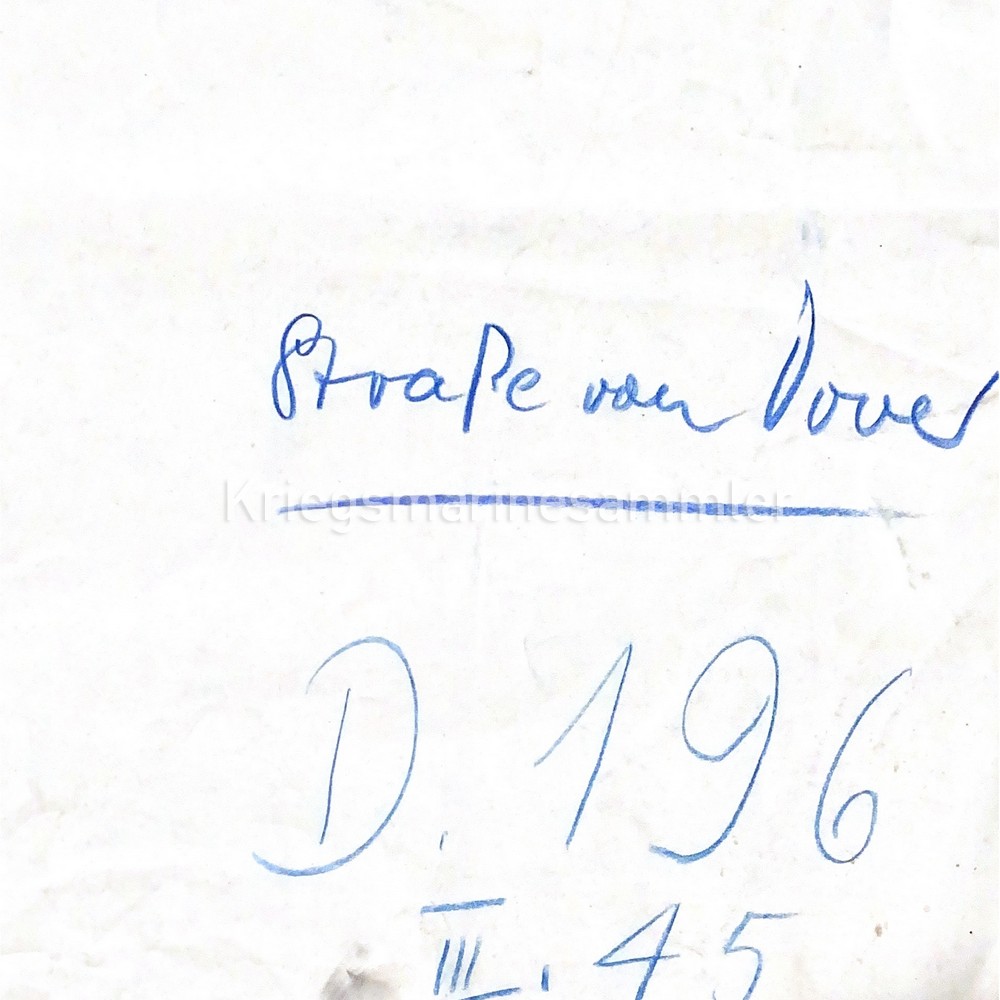 Straße von Dover
Kriegsmarinesammler
D. 196
III. 45